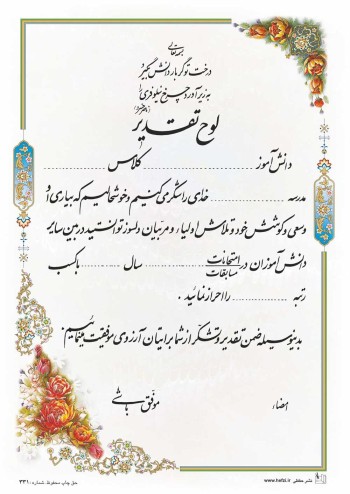 بسمه تعالی
درخت تو گر بار دانش بگیرد
به زیر آوری چرخ نیلوفری را
لوح تقدیر
دانش آموز ........ کلاس ........
مدرسه ........ خدای را شکر می کنیم و خوشحالیم که به یاری او
و سعی و کوشش خود و تلاش اولیاء و مربیان دلسوز توانستید در بین سایر
دانش آموزان در امتحانات مسابقات ........ سال ........ با کسب
رتبه ........ را احراز نمائید .
بدینوسیله ضمن تقدیر و تشکر از شما برایتان آرزوی موفقیت می نمائیم.
موفق باشی
امضاء
حق چاپ محفوظ. شماره: ۳۳۱
www.hefzi.ir